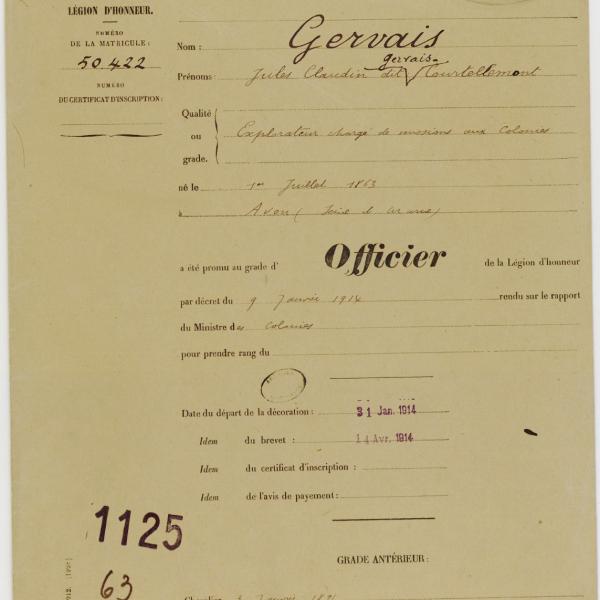 LÉGION D'HONNEUR.
NUMÉRO
DE LA MATRICULE :
50.422
NUMÉRO
DU CERTIFICAT D'INSCRIPTION :
Nom : Gervais
gervais-
Prénoms : Jules Claudin dit Courtellemont
Qualité
ou
grade.
Explorateur chargé de missions aux Colonies
né le 1er Juillet 1863
à Avon (Seine et Marne)
a été promu au grade d' Officier de la Légion d'honneur
par décret du 9 Janvier 1914 rendu sur le rapport
du Ministre des Colonies
pour prendre rang du
Date du départ de la décoration : 31 Jan. 1914
Idem du brevet : 14 Avr. 1914
Idem du certificat d'inscription :
Idem de l'avis de payement :
1125
GRADE ANTÉRIEUR :
63
Chevalier Janvier